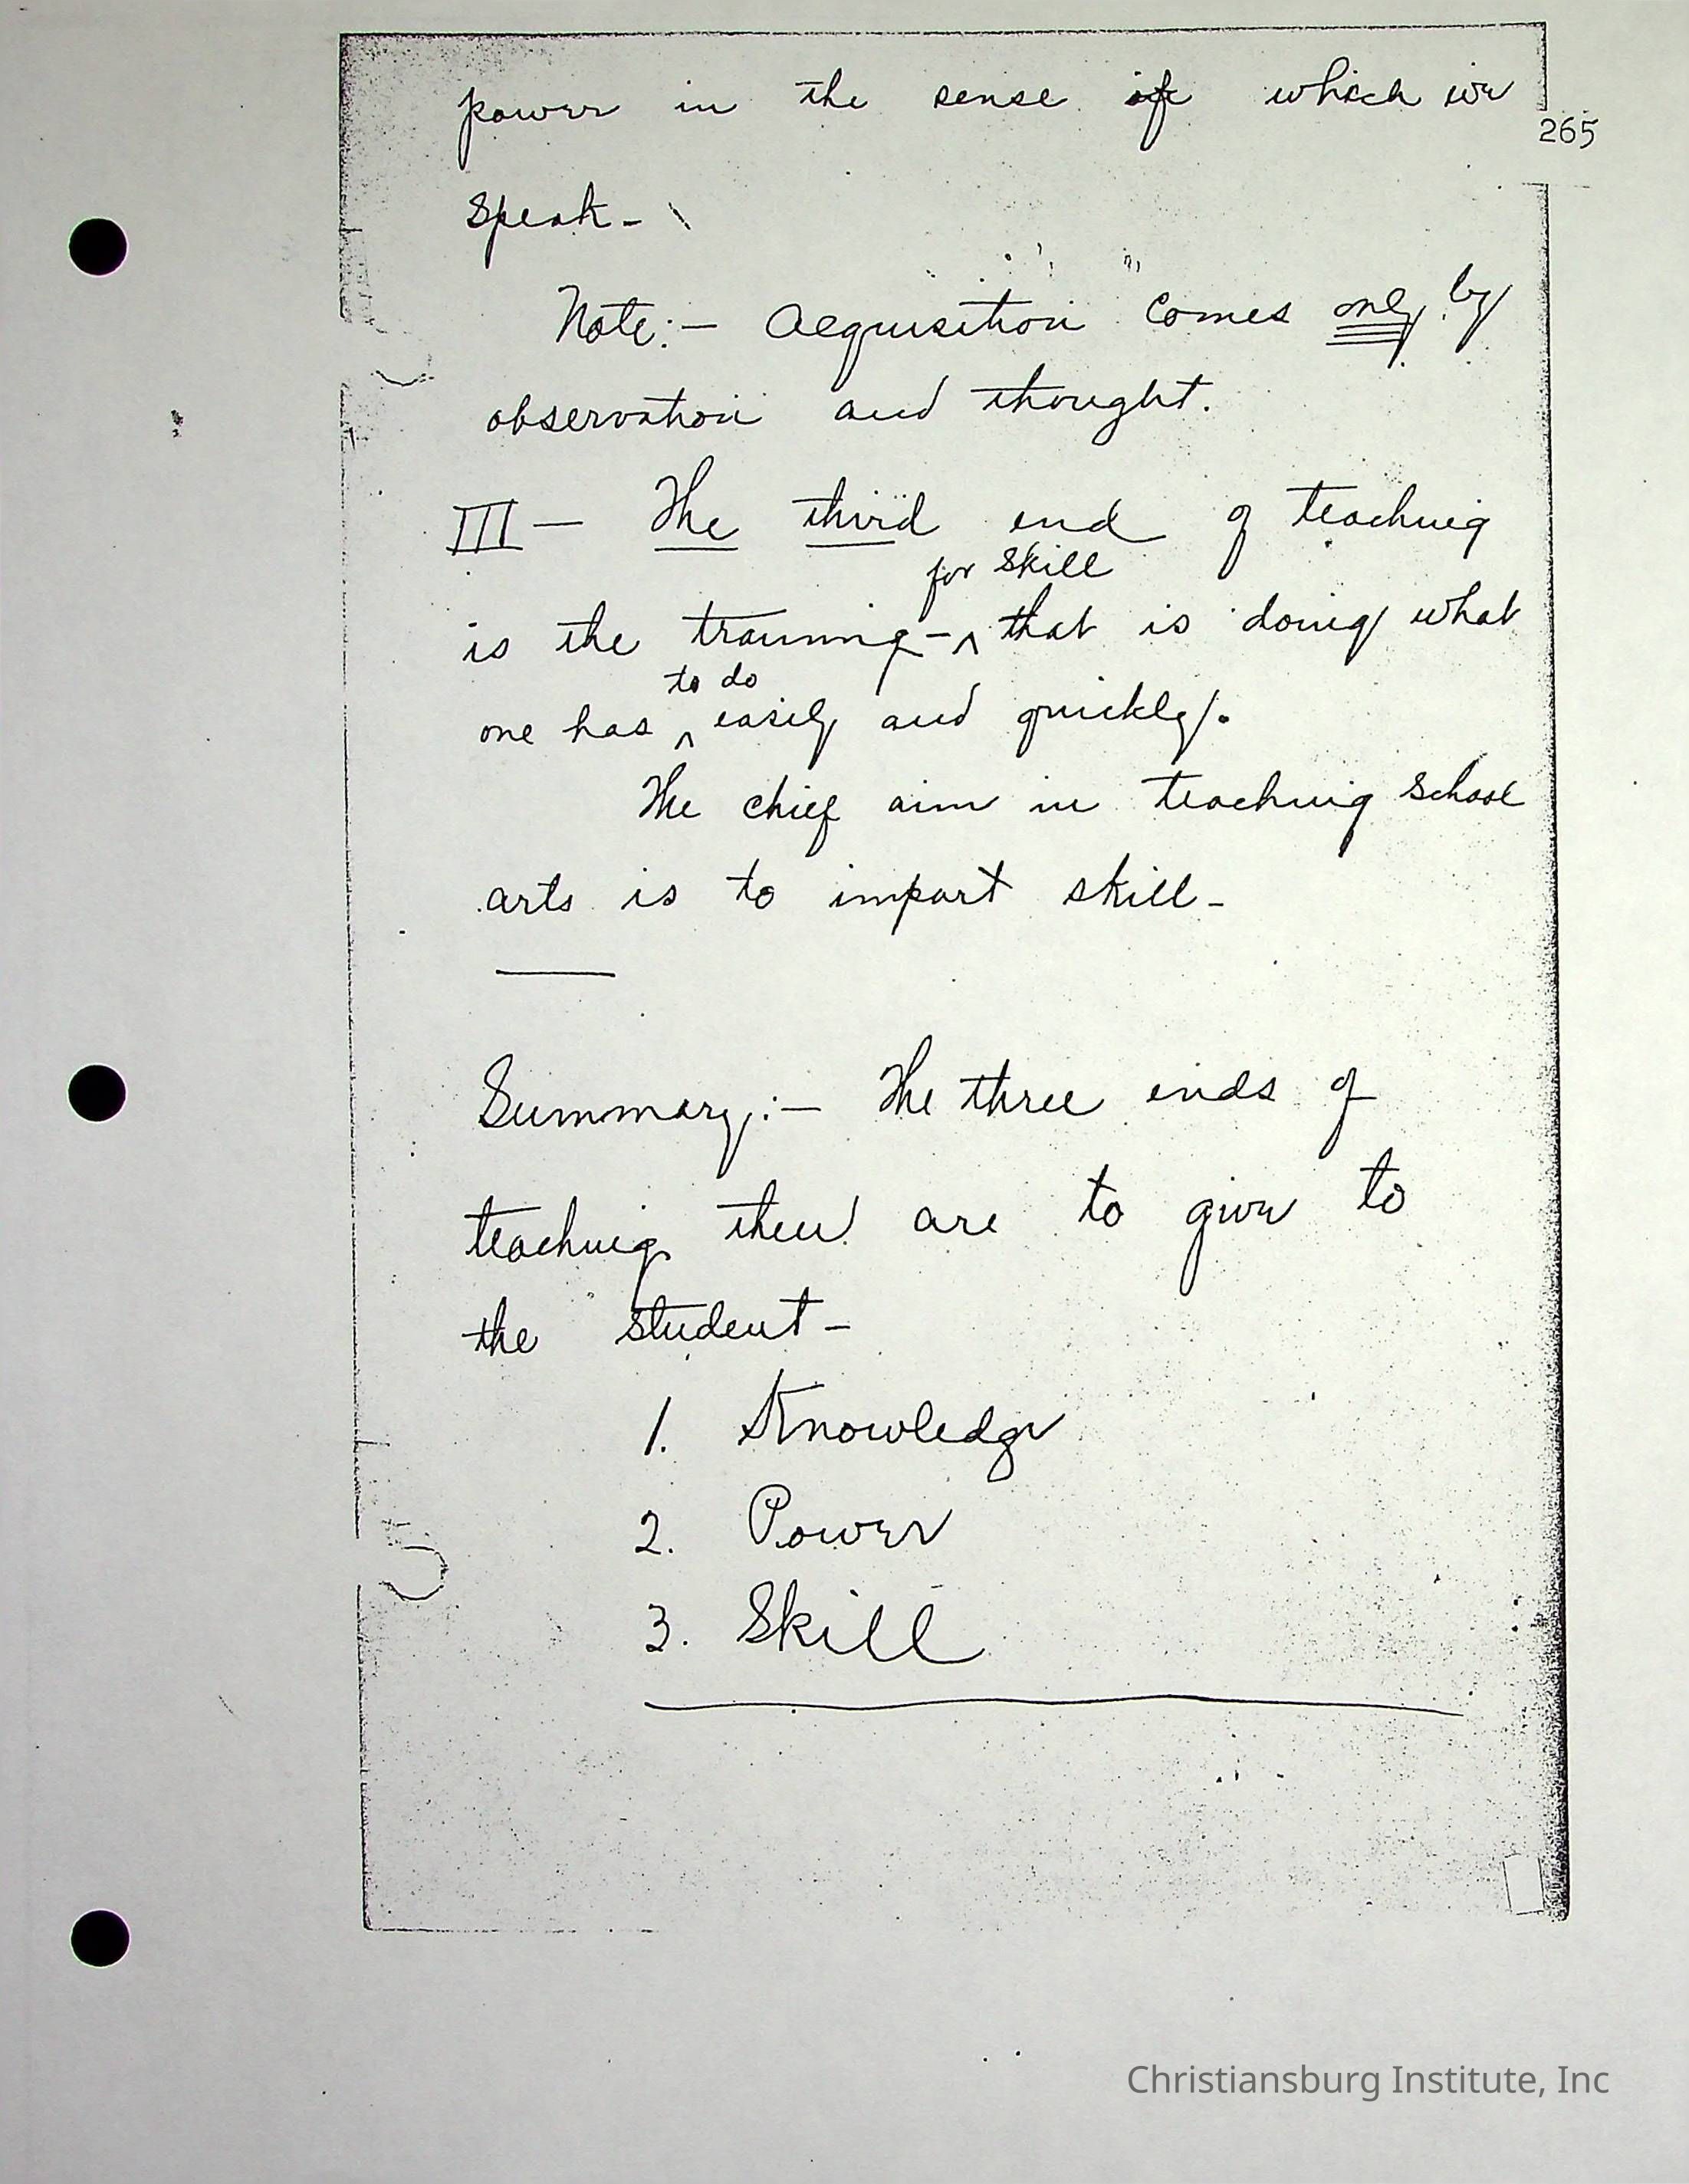 power in the sense of which we
265
speak-
Note:- Acquisition comes only by
observation and thought.
III- The third end of teaching
for skill
is the training-^ that is doing what
to do
one has ^ easily and quickly.
The chief aim in teaching school
arts is to impart skill-
Summary:- The three ends of
teaching then are to give to
the student-
1. Knowledge
2. Power
3. Skill
Christiansburg Institute, Inc